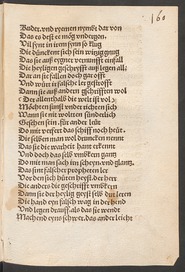 160
Wider vnd ryemen nymbt dar von
Das es dest er mög vndergon.
Vil synt in irem synn so klug
Die düncken sich syn witzig gnug
Das sie vß eygner vernunfft infall
Die heyligen geschryfft vß legen all
Dar an sie fälen doch gar offt
Und würt ir falsche ler gestrofft
Dann sie vß andern gschrifften wol
Der allenthalb die welt ist vol
Möchten sunst vnder richten sich
Wann sie nit wolten sunderlich
Gesehen syn für ander lüt
Do mit verfert das schiff noch hüt
Die selben man wol druncken nennt
Das sie die warheit hant erkennt
Und doch das selb vmbkeren gantz
Do mit man säch im schyn vnd glantz
Das sint falscher propheten ler
Vor den sich hüten heyßt der herr
Die anders die geschrifft vmbkern
Dann sie der heylig geyst selb dut leren
Die hand eyn falsch wag in der hend
Und legen druff als das sie wend
Machend eyns schwer, das ander licht